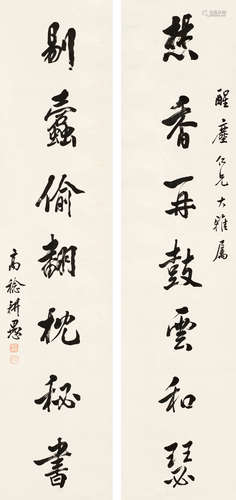 焚香再鼓雲和瑟
醒塵仁兄大雅屬
剔蠹偷翻枕秘書
高稔耕